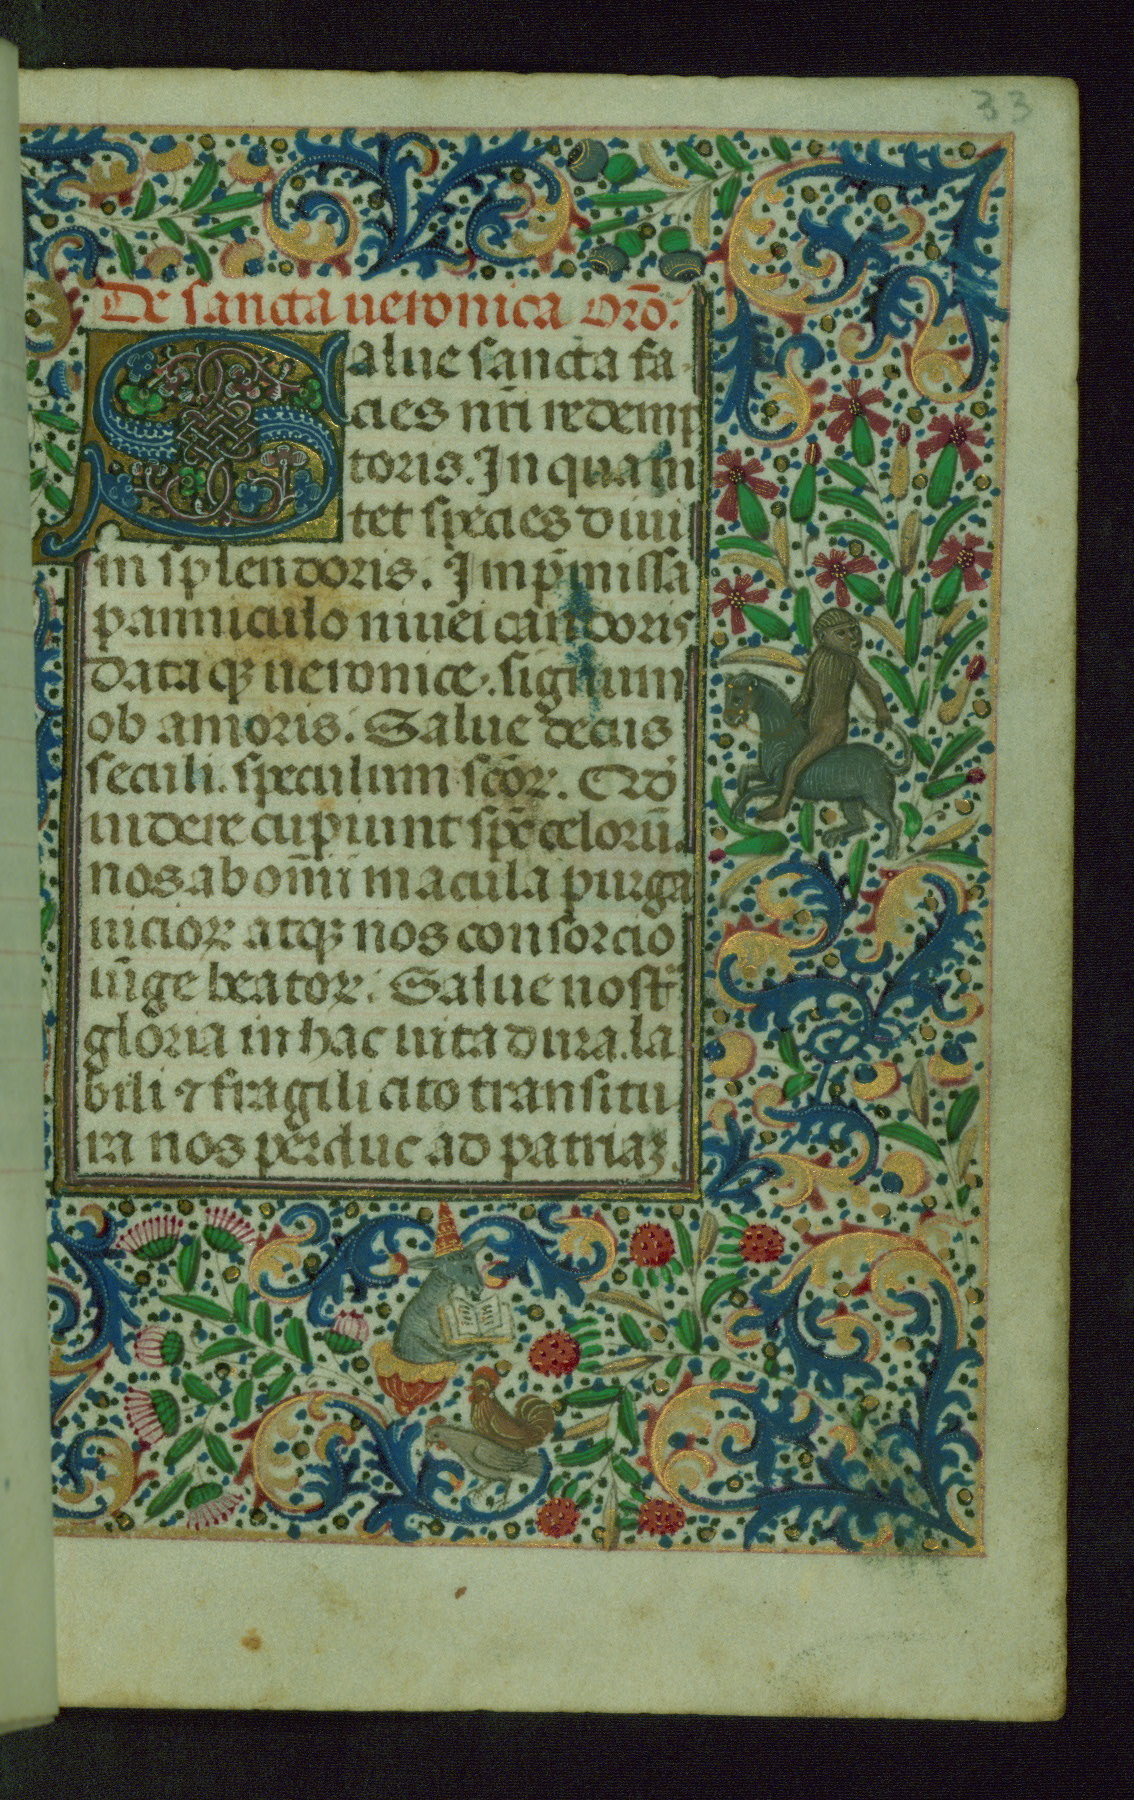 33
De sancta ueronica Orō.
Salue sancta fa
cies nr̄i redemp
toris. In qua ni
tet species diui
ni splendoris. Imp̄missa
panniculo niuei candoris
Data qꝫ ueronice. signum
ob amoris. Salue decus
seculi. speculum scōꝝ. Qd̓
uidere cupiunt sp̄s celorū.
nos ab om̄i macula purga
uicioꝝ atqꝫ nos consorcio
iūge beatoꝝ. Salue nost̄
gloria in hac uita dura. la
bili ⁊ fragili cito transitu
ra nos perduc ad patriaꝫ.